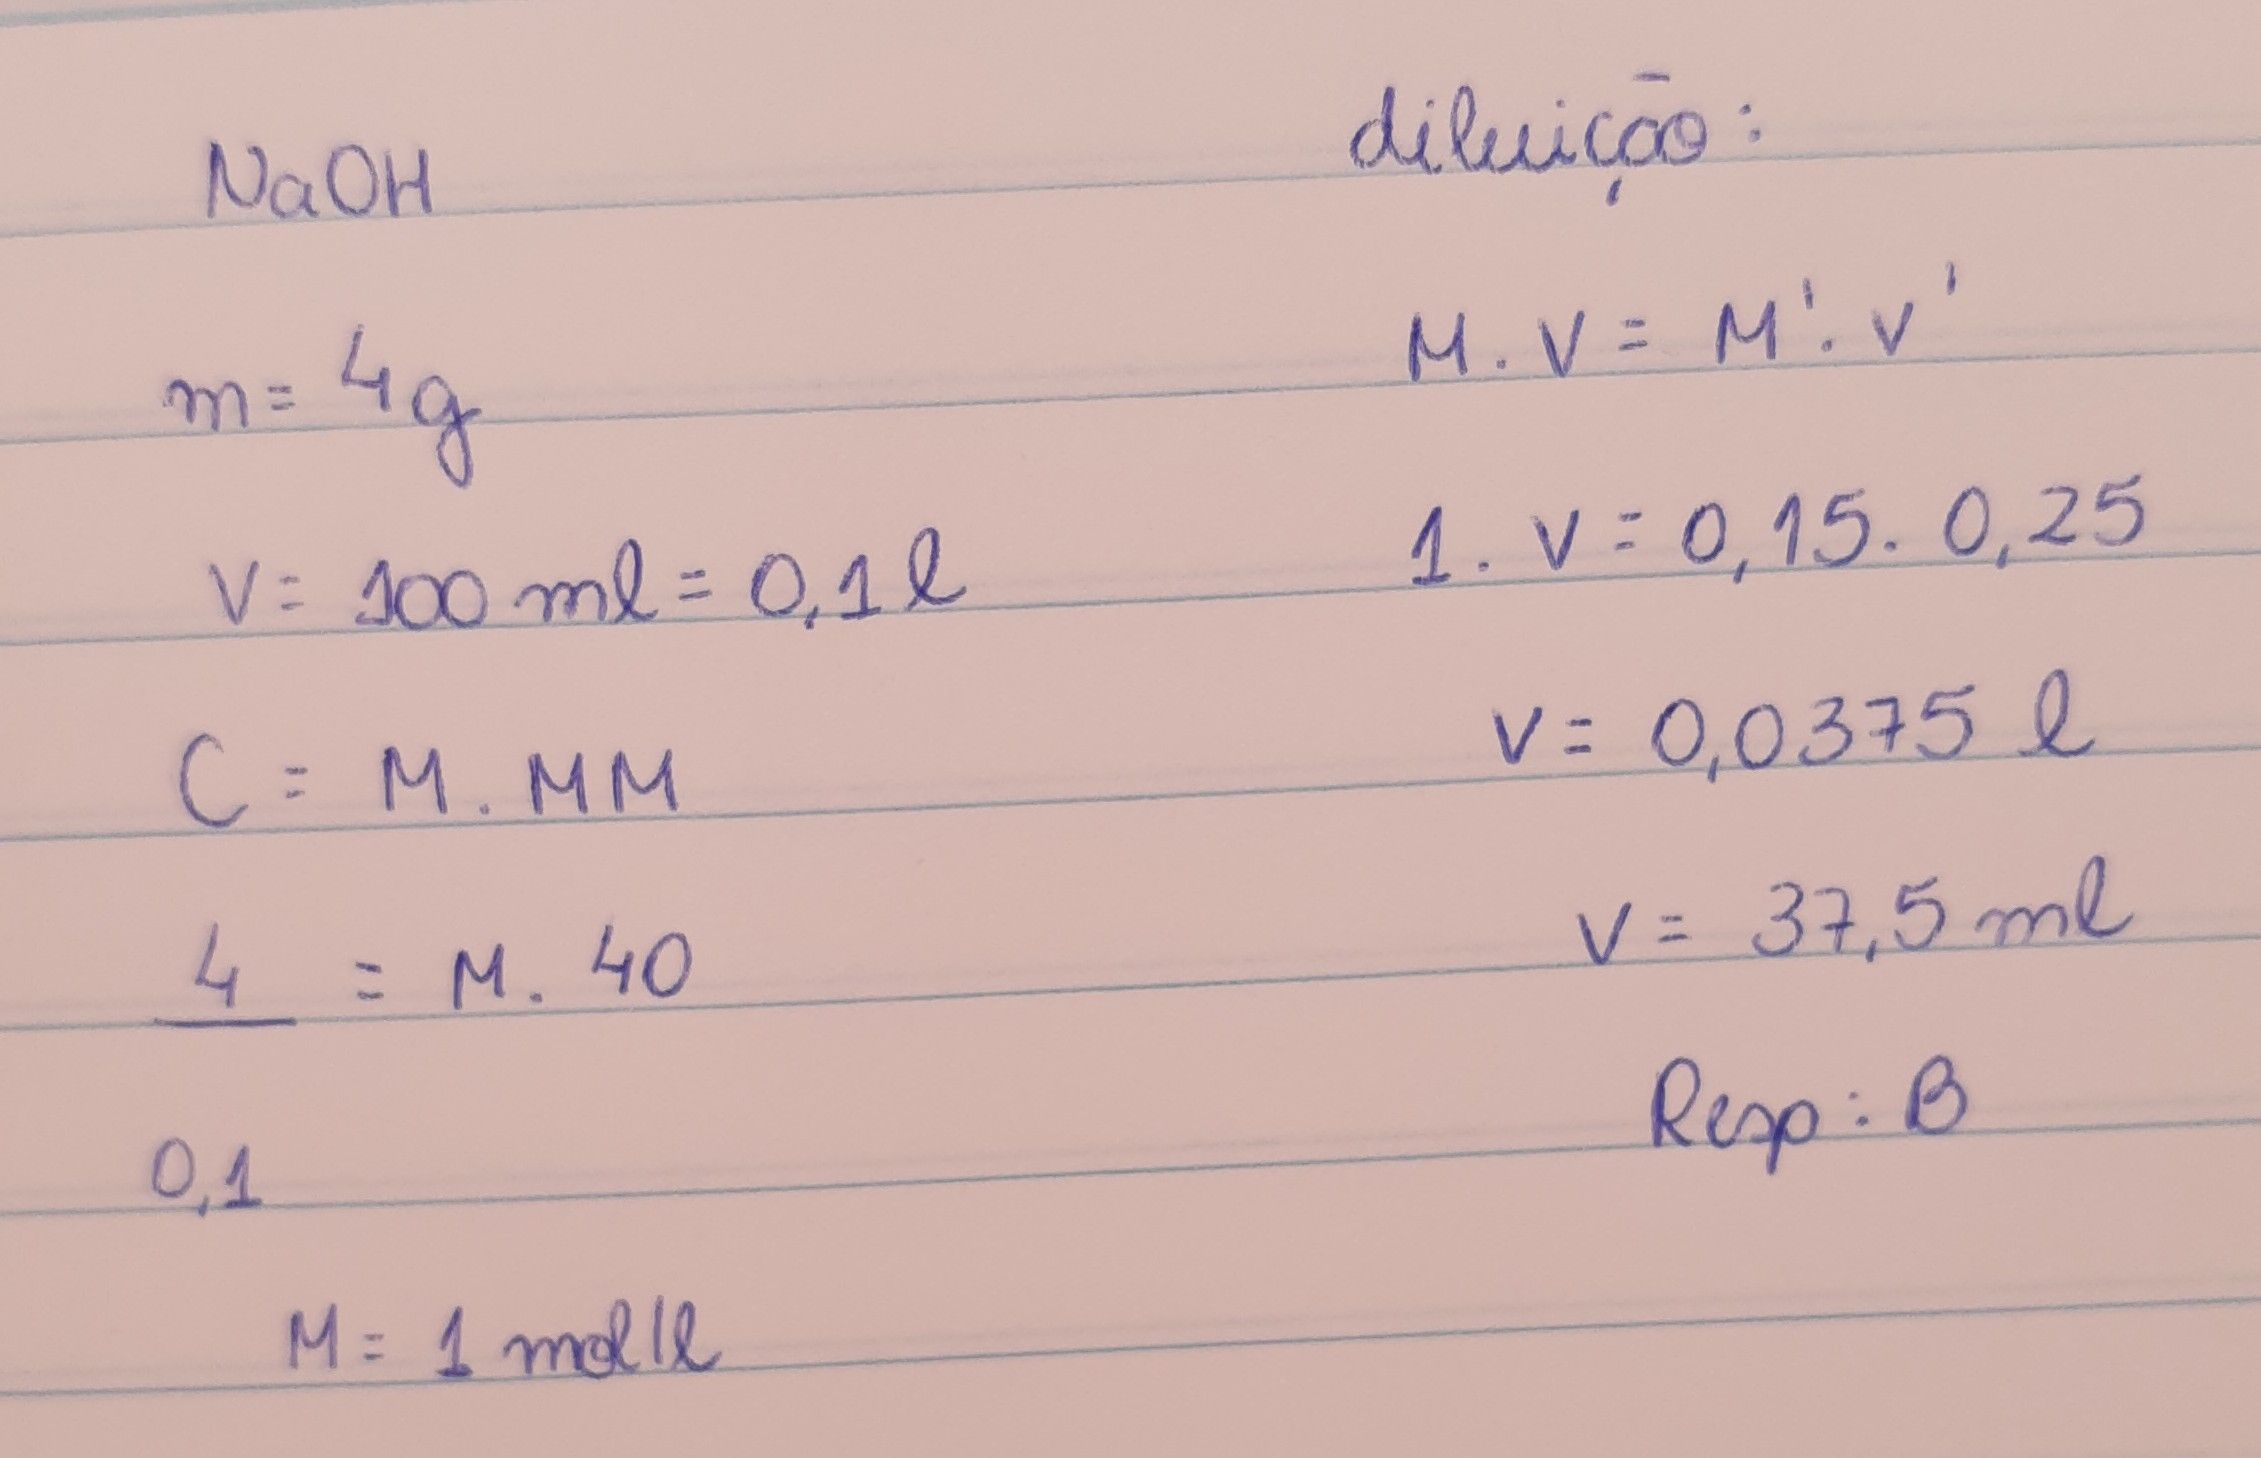 NaOH
m = 4g
V = 100 ml = 0,1 l
C = M . MM
4 = M . 40
0,1
M = 1 mol/l
diluição:
M . V = M' . V'
1 . V = 0,15 . 0,25
V = 0,0375 l
V = 37,5 ml
Resp: B